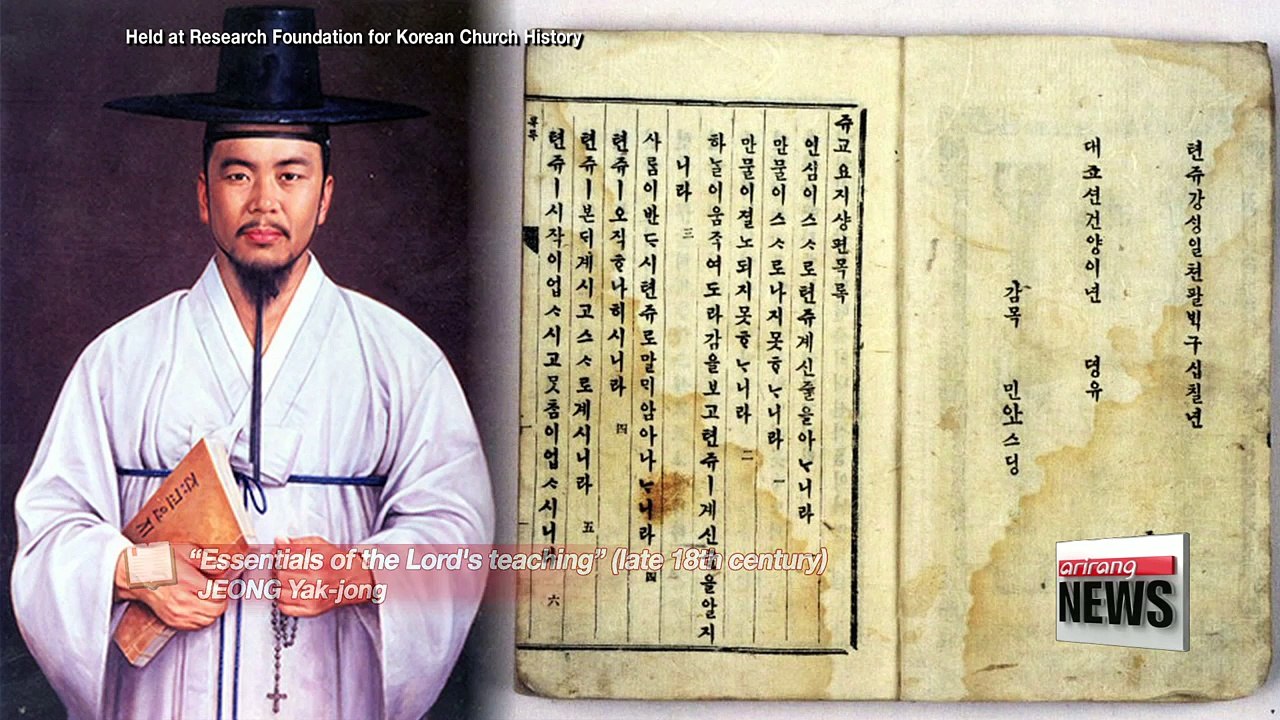 Held at Research Foundation for Korean Church History
텬쥬강싱일쳔팔빅구십칠년
대죠션건양이년 뎡유
감목 민 스딩
쥬교요지샹편목록
인심이스ᄉᆞ로텬쥬계신줄을아ᄂᆞ니라
만물이스ᄉᆞ로나지못ᄒᆞᄂᆞ니라 一
만물이졀노되지못ᄒᆞᄂᆞ니라 二
하ᄂᆞᆯ이움죽여도라감을보고텬쥬ㅣ계신줄을알지
니라 三
사ᄅᆞᆷ이반ᄃᆞ시텬쥬로말ᄆᆡ암아나ᄂᆞ니라 四
텬쥬ㅣ오직ᄒᆞ나히시니라 四
텬쥬ㅣ본ᄃᆡ계시고스ᄉᆞ로계시니라 五
텬쥬ㅣ시작이업ᄉᆞ시고ᄆᆞᆺᄎᆞᆷ이업ᄉᆞ시니라 六
목록
“Essentials of the Lord's teaching” (late 18th century)
JEONG Yak-jong
arirang
NEWS